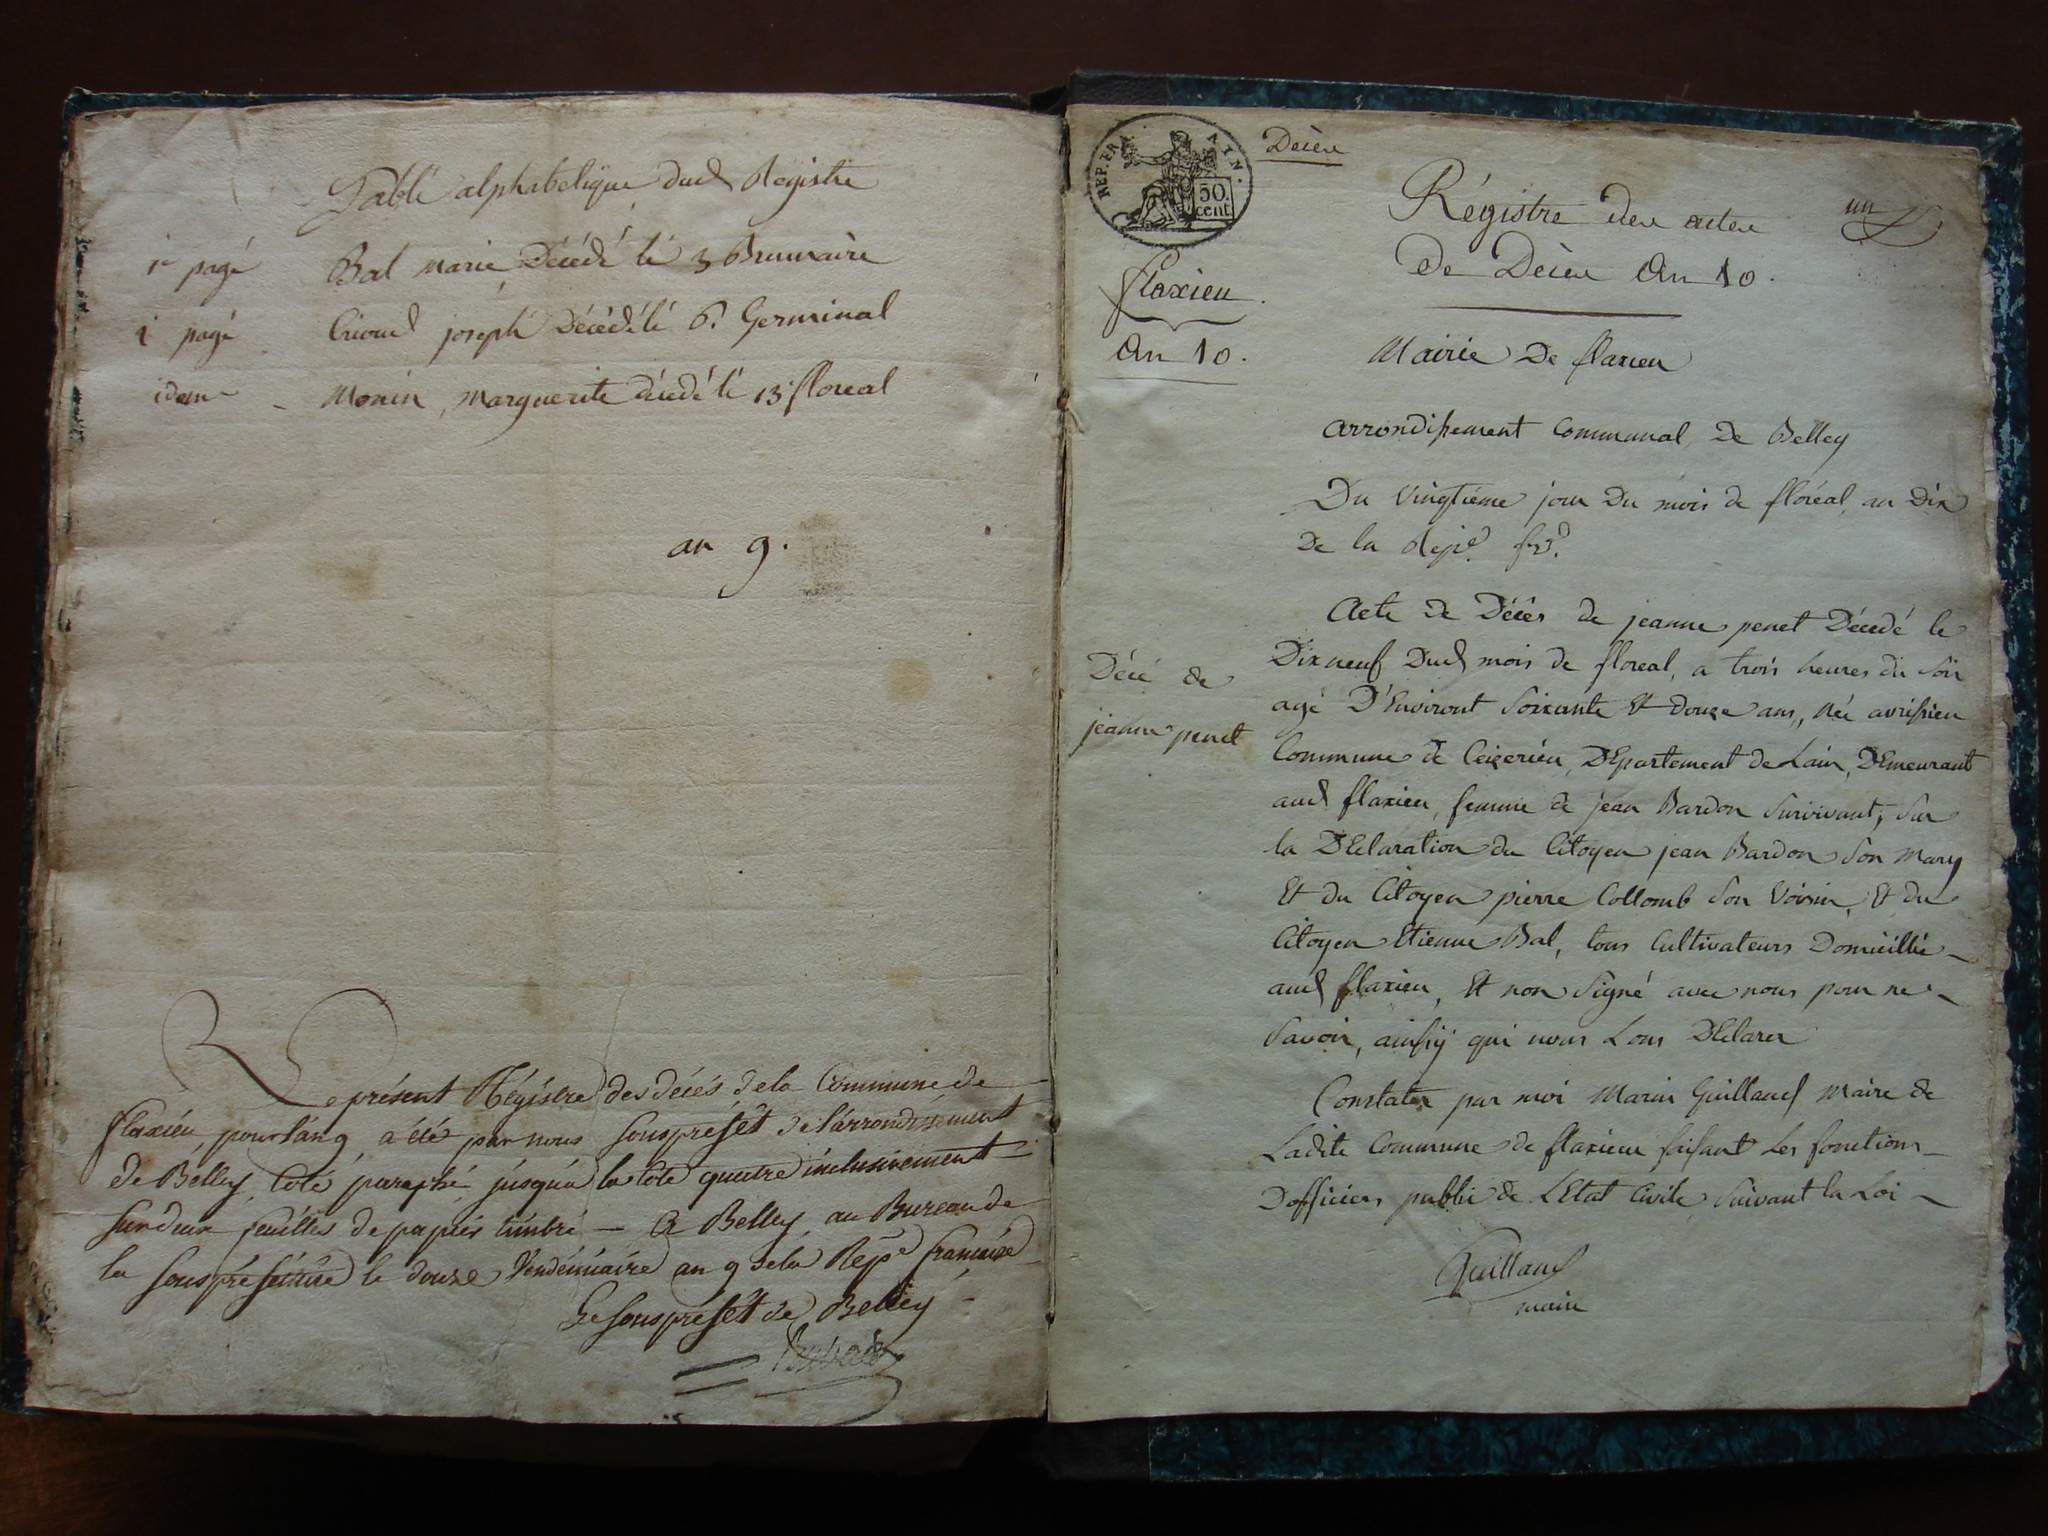 Table alphabetique dud Registre
1e pagé Bal marie Décédé lé 3 Brumaire
1 pagé joseph Décédé lé 6. Germinal
idem - Monin, Marguerite décédé lé 13 floreal
an 9.
Le présent Régistre des décés de la Commune de
flaxieu, pour l'an 9 a été par nous souspréfét de l'arrondisement
de Belley, coté paraphé jusqu'a la cote quatre inclusivement
sur deux feuilles de papier timbré — a Belley au Bureau de
la souspréfecture le douze Vendémiaire an 9 de la Repe francaise
Le souspréfét de Belley
REP. FRA. AIN.
50.
cent
Décès
flaxieu.
An 10.
Régistre des actes un
de Décès An 10.
Mairie De flaxieu
arrondissement Communal de Belley
Du Vingtième jour Du mois de floréal, an Dix
De la Repe. fr.
Acte de Décès de jeanne penet Décedé le
Dixneuf Dud mois de floreal, a trois heures du Soir
Décé de
jeanne penet
agé D'Environt Soixante Et douze ans, Née avrissieu
Commune de Ceizerieu, DEpartement de Lain, DEmeurant
aud flaxieu, femme de jean Bardon Survivant, Sur
la DEclaration du Citoyen jean Bardon Son Mary
Et du Citoyen pierre Collomb Son Voisin, Et du
Citoyen Etienne Bal, tous Cultivateurs Domicillié
aud flaxieu, Et non Signé avec nous pour ne
Savoir, ainsiÿ qui nous Lons DEclarer
Constater par moi Marin Guillaud Maire de
Ladite Commune de flaxieu faisant Les fonctions
Dofficier public de LEtat Civile Suivant la Loi
Guillaud
maire